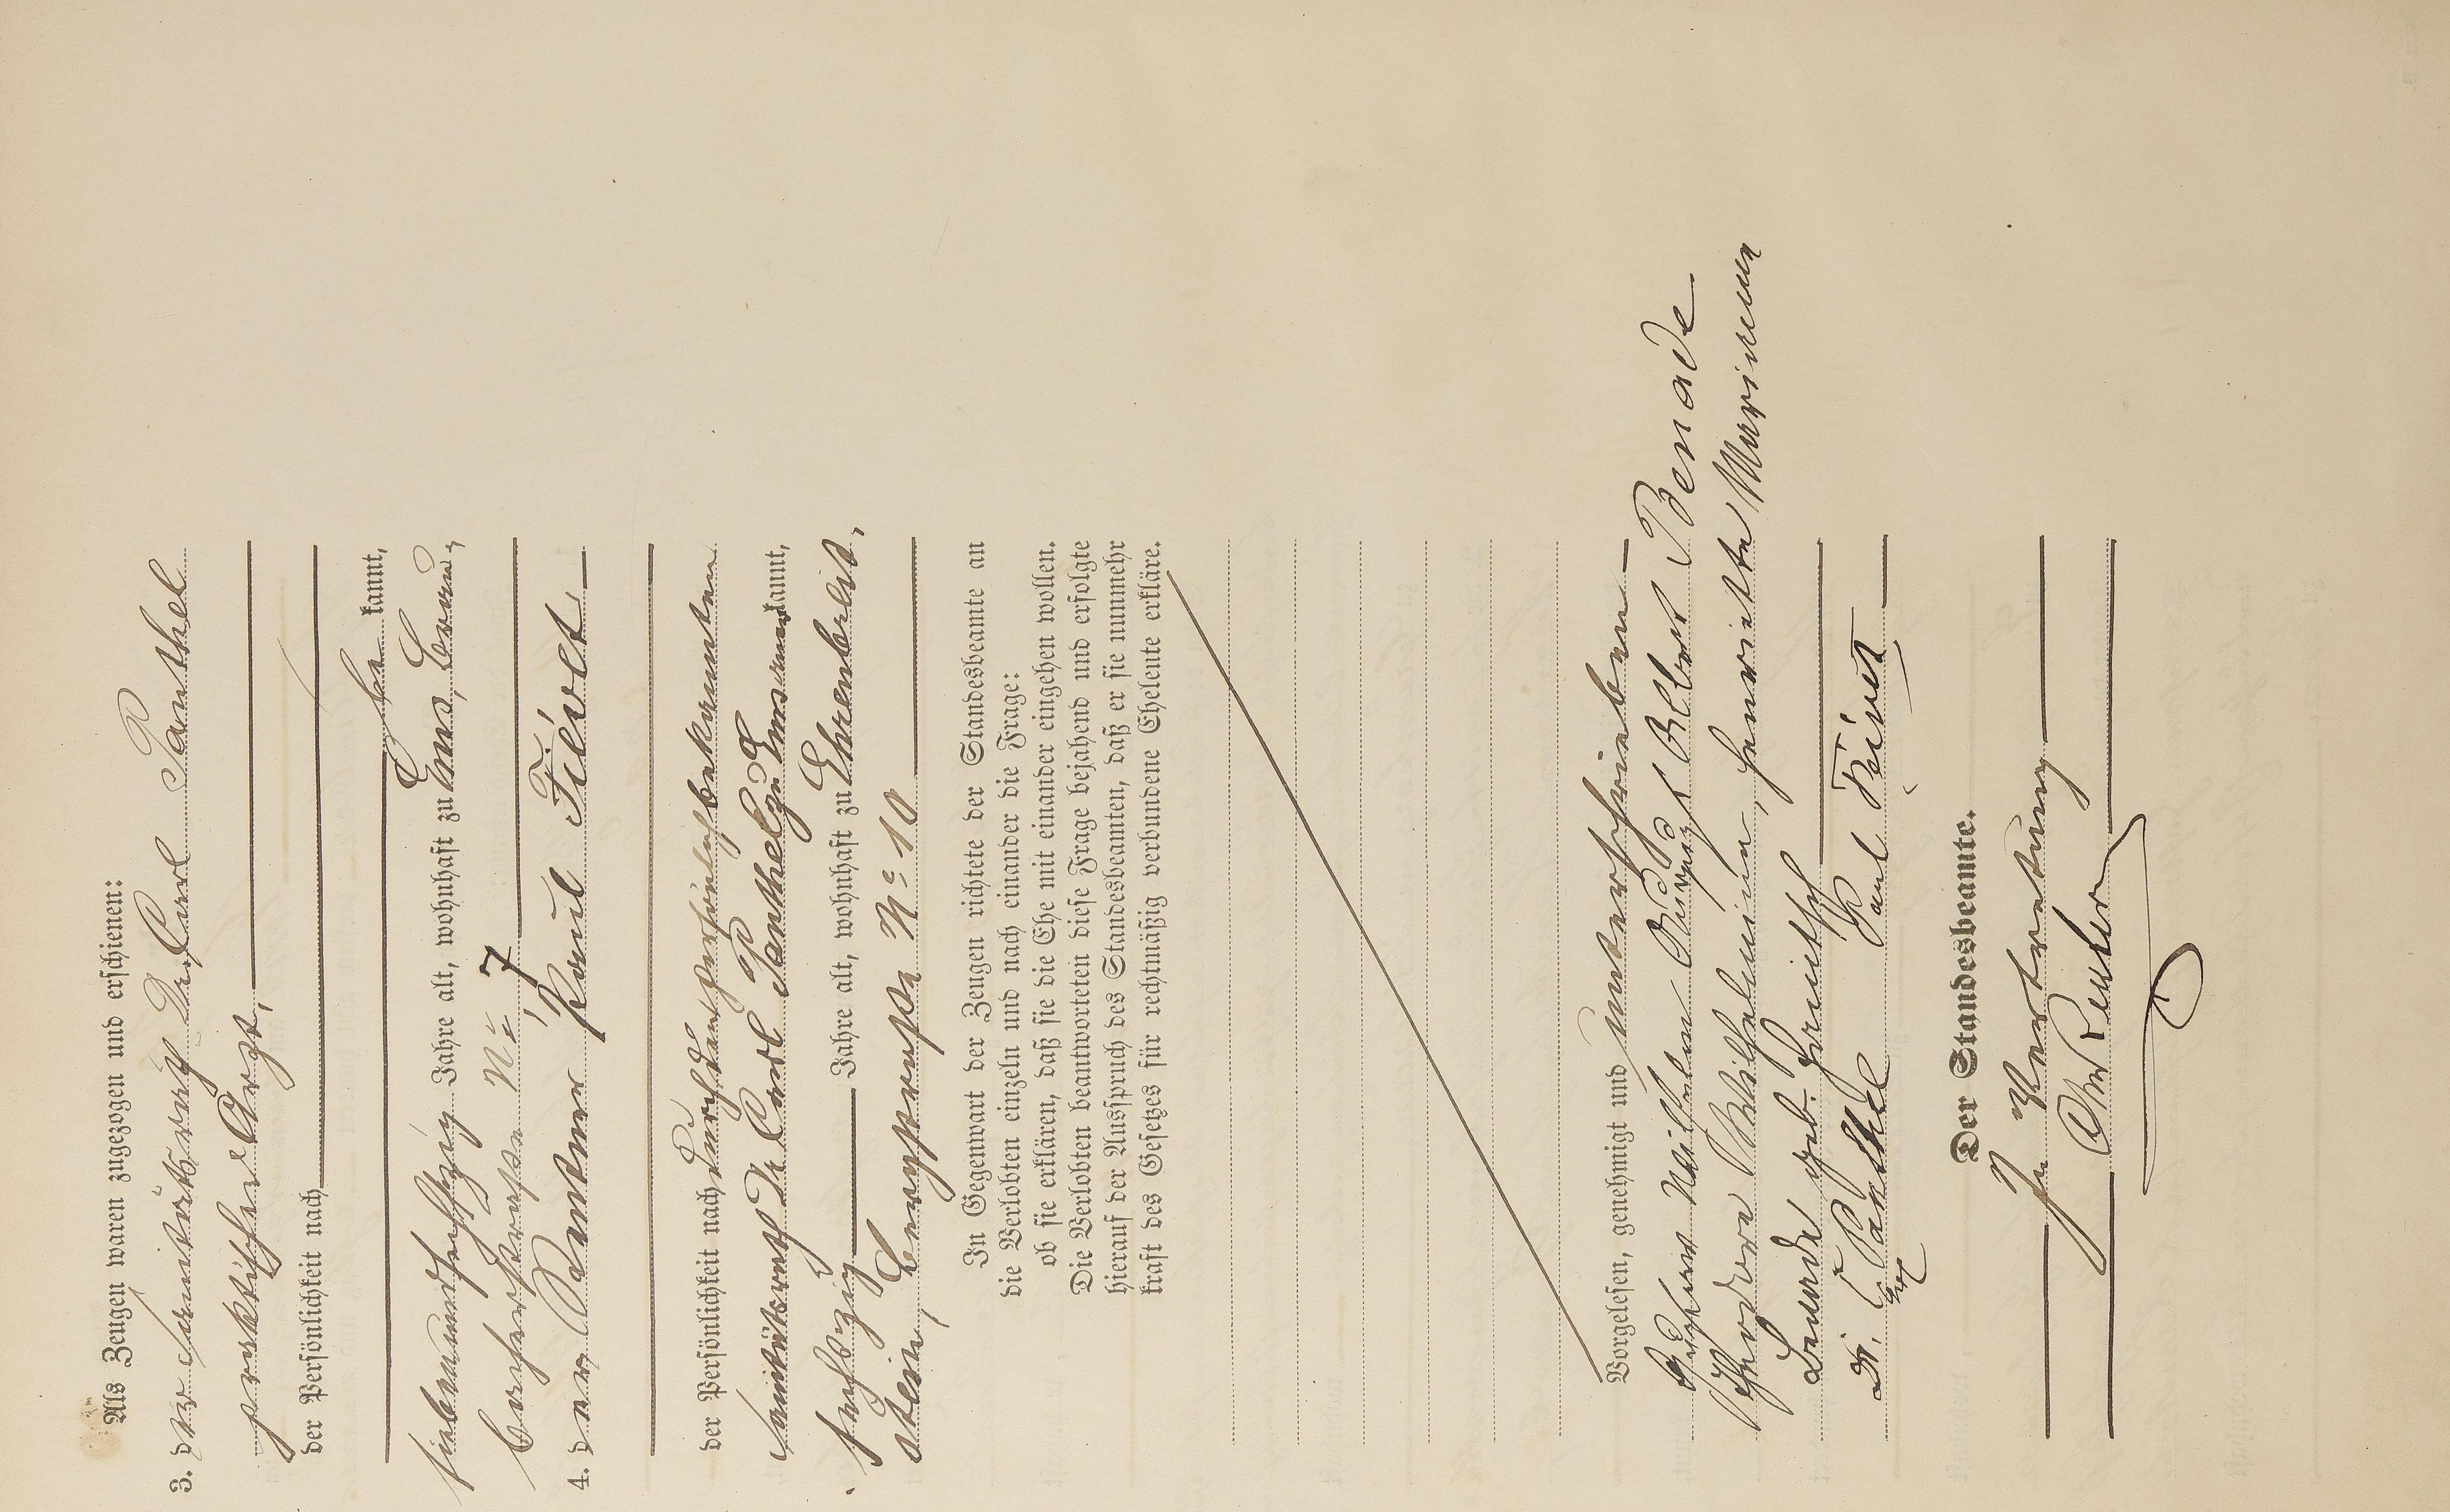 Als Zeugen waren zugezogen und erschienen:
3. der Sanitätsrath Dr. Carl Panthel
praktischer Arzt,
der Persönlichkeit nach
be kannt,
siebenundsechszig Jahre alt, wohnhaft zu Ems, Brau-
bacherstraße No 7
4. der Rentner Paul
der Persönlichkeit nach durch den persönlich bekannten
Sanitätsrath Dr. Carl Panthel zu Ems anerkannt,
sechszig Jahre alt, wohnhaft zu Ehrenbreit,
stein, No 10
In Gegenwart der Zeugen richtete der Standesbeamte an
die Verlobten einzeln und nach einander die Frage:
ob sie erklären, daß sie die Ehe mit einander eingehen wollen.
Die Verlobten beantworteten diese Frage bejahend und erfolgte
hierauf der Ausspruch des Standesbeamten, daß er sie nunmehr
kraft des Gesetzes für rechtmäßig verbundene Eheleute erkläre.
Vorgelesen, genehmigt und unterschrieben
Wilhelm August Albert Benade
Wilhelmine, Henriette Marianne
Benade geb.
Dr. C. Panthel Paul
Der Standesbeamte.
In Vertretung